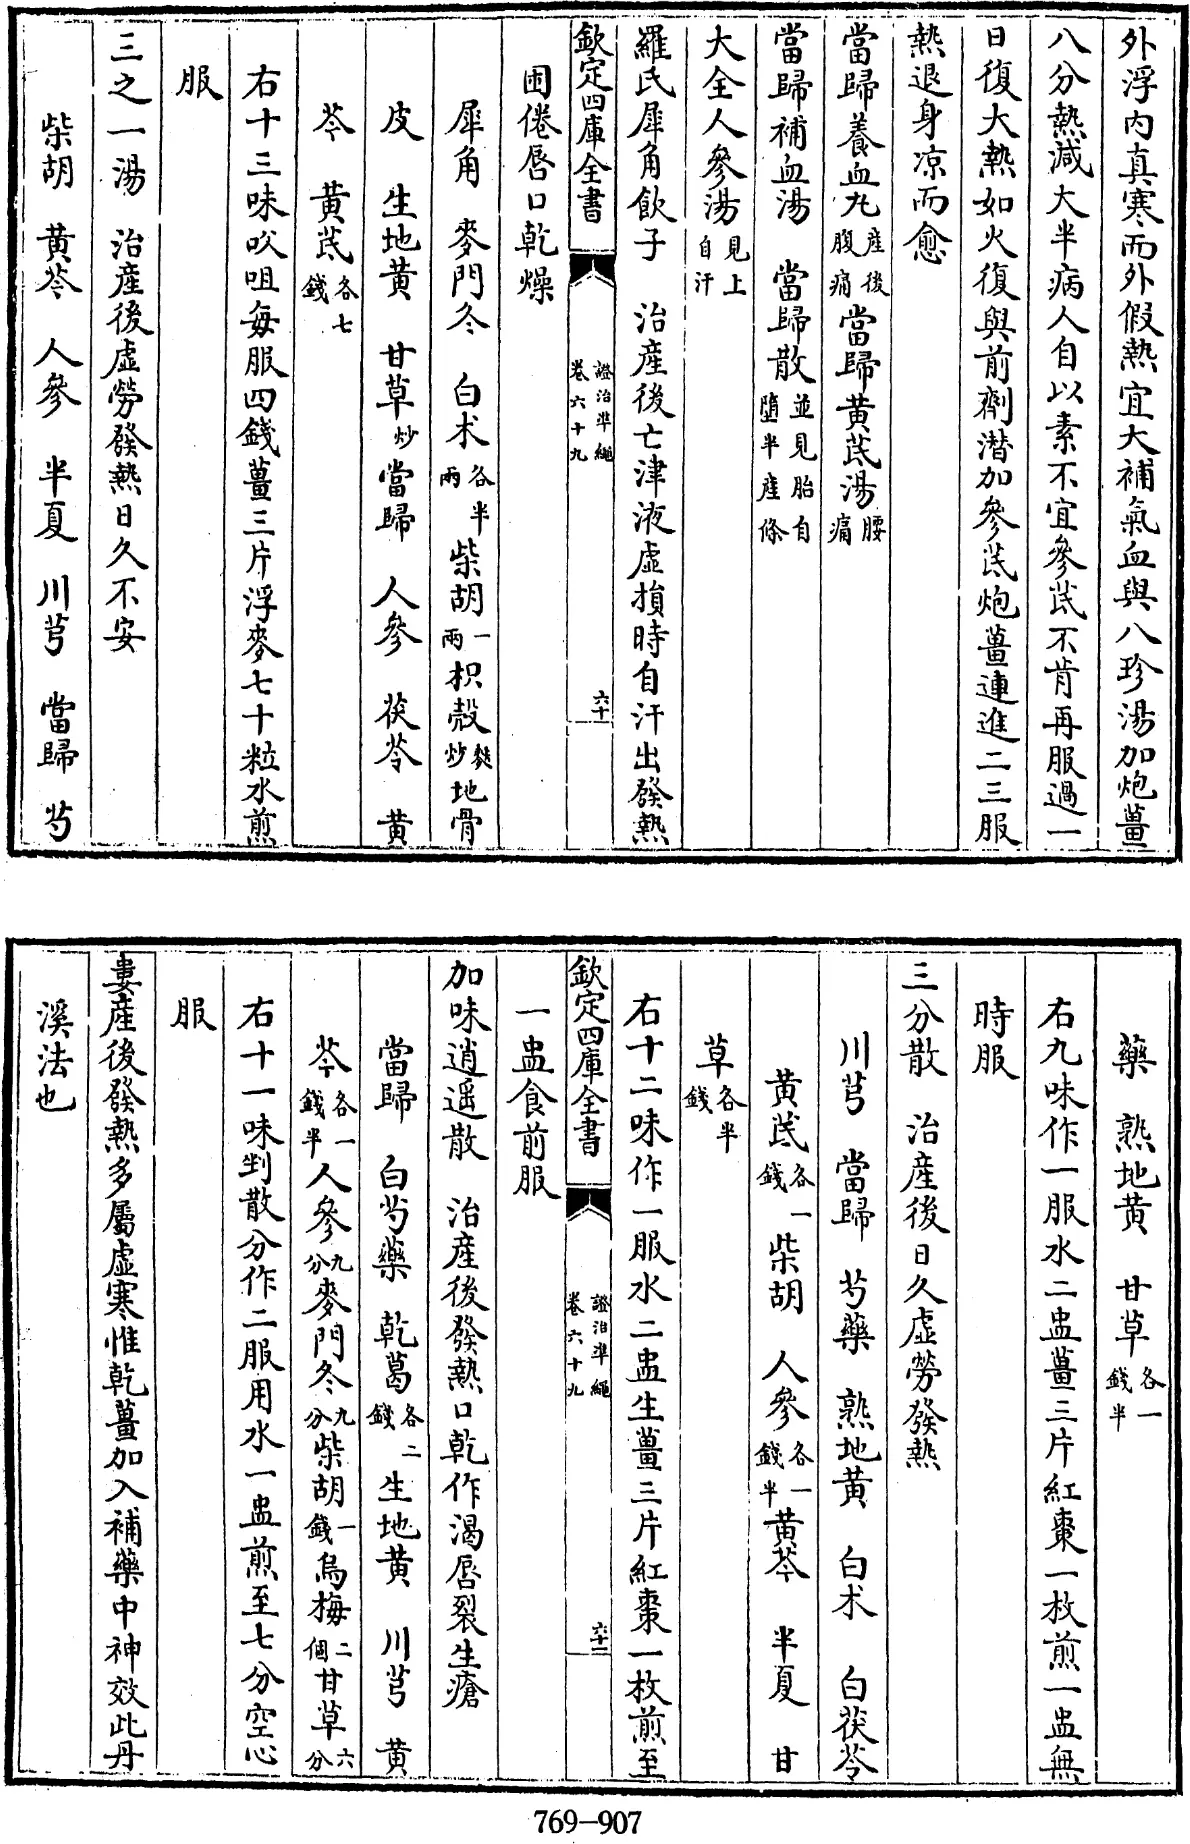 外浮内真寒而外假熱宜大補氣血與八珍湯加炮薑
八分熱減大半病人自以素不宜參茋不肯再服過一
日復大熱如火復與前劑潛加參茋炮薑連進二三服
熱退身凉而愈
當歸養血丸產後腹痛當歸黄茋湯腰痛
當歸補血湯　當歸散並見胎自墮半產條
大全人參湯見上自汗
羅氏犀角飲子　治產後亡津液虛損時自汗出發熱
欽定四庫全書　證治準繩卷六十九　六十
困倦唇口乾燥
犀角　麥門冬　白术各半兩柴胡一兩枳殻麩炒地骨
皮　生地黄　甘草炒當歸　人參　茯苓　黄
芩　黄茋各七錢
右十三味㕮咀每服四錢薑三片浮麥七十粒水煎
服
三之一湯　治產後虛勞發熱日久不安
柴胡　黄芩　人參　半夏　川芎　當歸　芍
藥　熟地黄　甘草各一錢半
右九味作一服水二盅薑三片紅棗一枚煎一盅無
時服
三分散　治產後日久虛勞發熱
川芎　當歸　芍藥　熟地黄　白术　白茯苓
黄茋各一錢柴胡　人參各一錢半黄芩　半夏　甘
草各半錢
右十二味作一服水二盅生薑三片紅棗一枚煎至
欽定四庫全書　證治準繩卷六十九　六十一
一盅食前服
加味逍遥散　治產後發熱口乾作渴唇裂生瘡
當歸　白芍藥　乾葛各二錢生地黄　川芎　黄
芩各一錢半人參九分麥門冬九分柴胡一錢烏梅二個甘草六分
右十一味剉散分作二服用水一盅煎至七分空心
服
婁產後發熱多屬虛寒惟乾薑加入補藥中神效此丹
溪法也
769-907